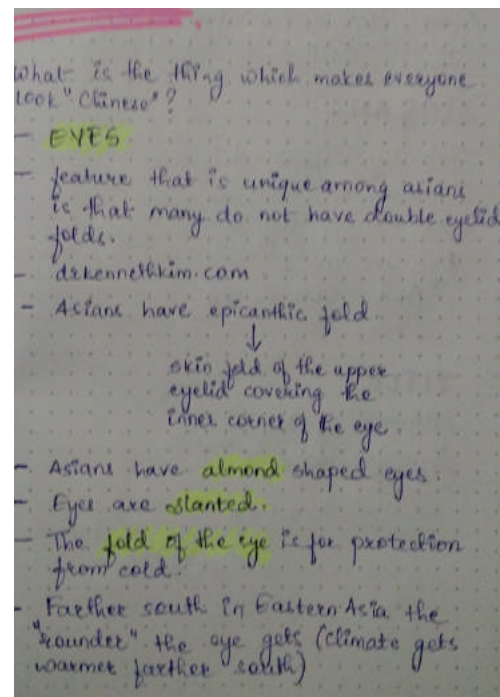 What is the thing which makes everyone
look "Chinese"?
- EYES
- feature that is unique among asians
is that many do not have double eyelid
folds.
- drkennethkim.com
- Asians have epicanthic fold.
↓
skin fold of the upper
eyelid covering the
inner corner of the eye.
- Asians have almond shaped eyes.
- Eyes are slanted.
- The fold of the eye is for protection
from cold.
- Farther south in Eastern Asia the
"rounder" the eye gets (climate gets
warmer farther south)